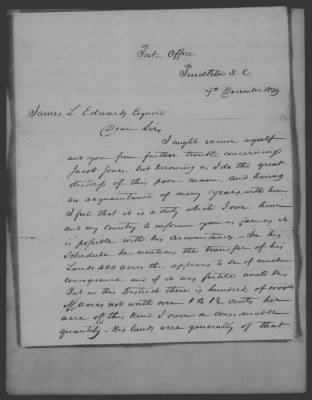 Post Office
Pendleton S. C.
7th December 1839
James L. Edwards Esquire
Dear Sir,
I might excuse myself
and you from further trouble concerning
Jacob Jones, but knowing as I do the great
distress of this poor man and having
an acquaintance of many years with him
I feel that it is a duty which I owe him
and my country to inform you as far as it
is possible with his circumstances - In his
Schedule he mentions the transfer of his
Lands 400 acres this appears to be of much
consequence and if it was fertile would be
But in this District there is hundreds of 1000ds
of acres not worth over 1 to 12 cents per
acre of this kind I own a considerable
quantity - His lands were generally of that